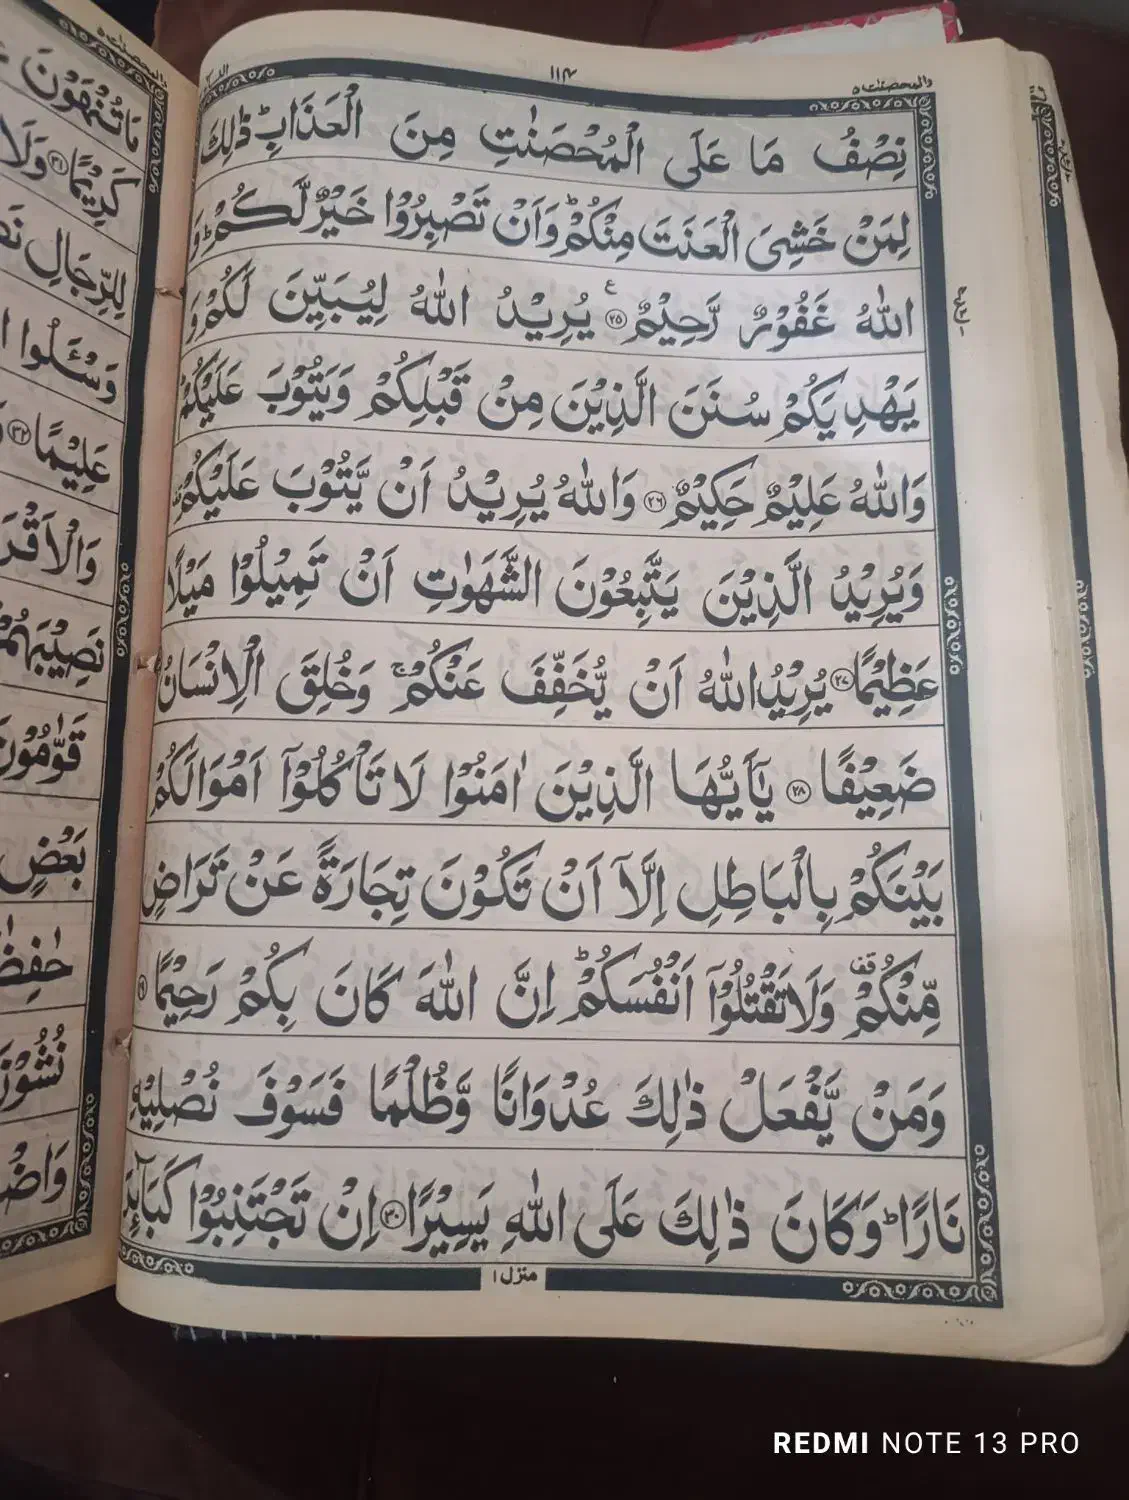 والمحصنت ٥
١١٤
نِصْفُ مَا عَلَى الْمُحْصَنٰتِ مِنَ الْعَذَابِ ؕ ذٰلِكَ
لِمَنْ خَشِىَ الْعَنَتَ مِنْكُمْ ؕ وَاَنْ تَصْبِرُوْا خَيْرٌ لَّكُمْ ؕ وَ
اللّٰهُ غَفُوْرٌ رَّحِيْمٌ ﴿٢٥﴾ يُرِيْدُ اللّٰهُ لِيُبَيِّنَ لَكُمْ وَ
يَهْدِيَكُمْ سُنَنَ الَّذِيْنَ مِنْ قَبْلِكُمْ وَيَتُوْبَ عَلَيْكُمْ
وَاللّٰهُ عَلِيْمٌ حَكِيْمٌ ﴿٢٦﴾ وَاللّٰهُ يُرِيْدُ اَنْ يَّتُوْبَ عَلَيْكُمْ
وَيُرِيْدُ الَّذِيْنَ يَتَّبِعُوْنَ الشَّهَوٰتِ اَنْ تَمِيْلُوْا مَيْلًا
عَظِيْمًا ﴿٢٧﴾ يُرِيْدُ اللّٰهُ اَنْ يُّخَفِّفَ عَنْكُمْ ۚ وَخُلِقَ الْاِنْسَانُ
ضَعِيْفًا ﴿٢٨﴾ يٰۤاَيُّهَا الَّذِيْنَ اٰمَنُوْا لَا تَاْكُلُوْۤا اَمْوَالَكُمْ
بَيْنَكُمْ بِالْبَاطِلِ اِلَّاۤ اَنْ تَكُوْنَ تِجَارَةً عَنْ تَرَاضٍ
مِّنْكُمْ ۟ وَلَا تَقْتُلُوْۤا اَنْفُسَكُمْ ؕ اِنَّ اللّٰهَ كَانَ بِكُمْ رَحِيْمًا
وَمَنْ يَّفْعَلْ ذٰلِكَ عُدْوَانًا وَّظُلْمًا فَسَوْفَ نُصْلِيْهِ
نَارًا ؕ وَكَانَ ذٰلِكَ عَلَى اللّٰهِ يَسِيْرًا ﴿٣٠﴾ اِنْ تَجْتَنِبُوْا كَبَآئِرَ
منزل ١
مَا تُنْهَوْنَ
كَرِيْمًا ﴿٣١﴾ وَلَا
لِلرِّجَالِ
وَسْـَٔلُوا
عَلِيْمًا ﴿٣٢﴾
نَصِيْبَهُمْ
قَوّٰمُوْنَ
بَعْضٍ
REDMI NOTE 13 PRO